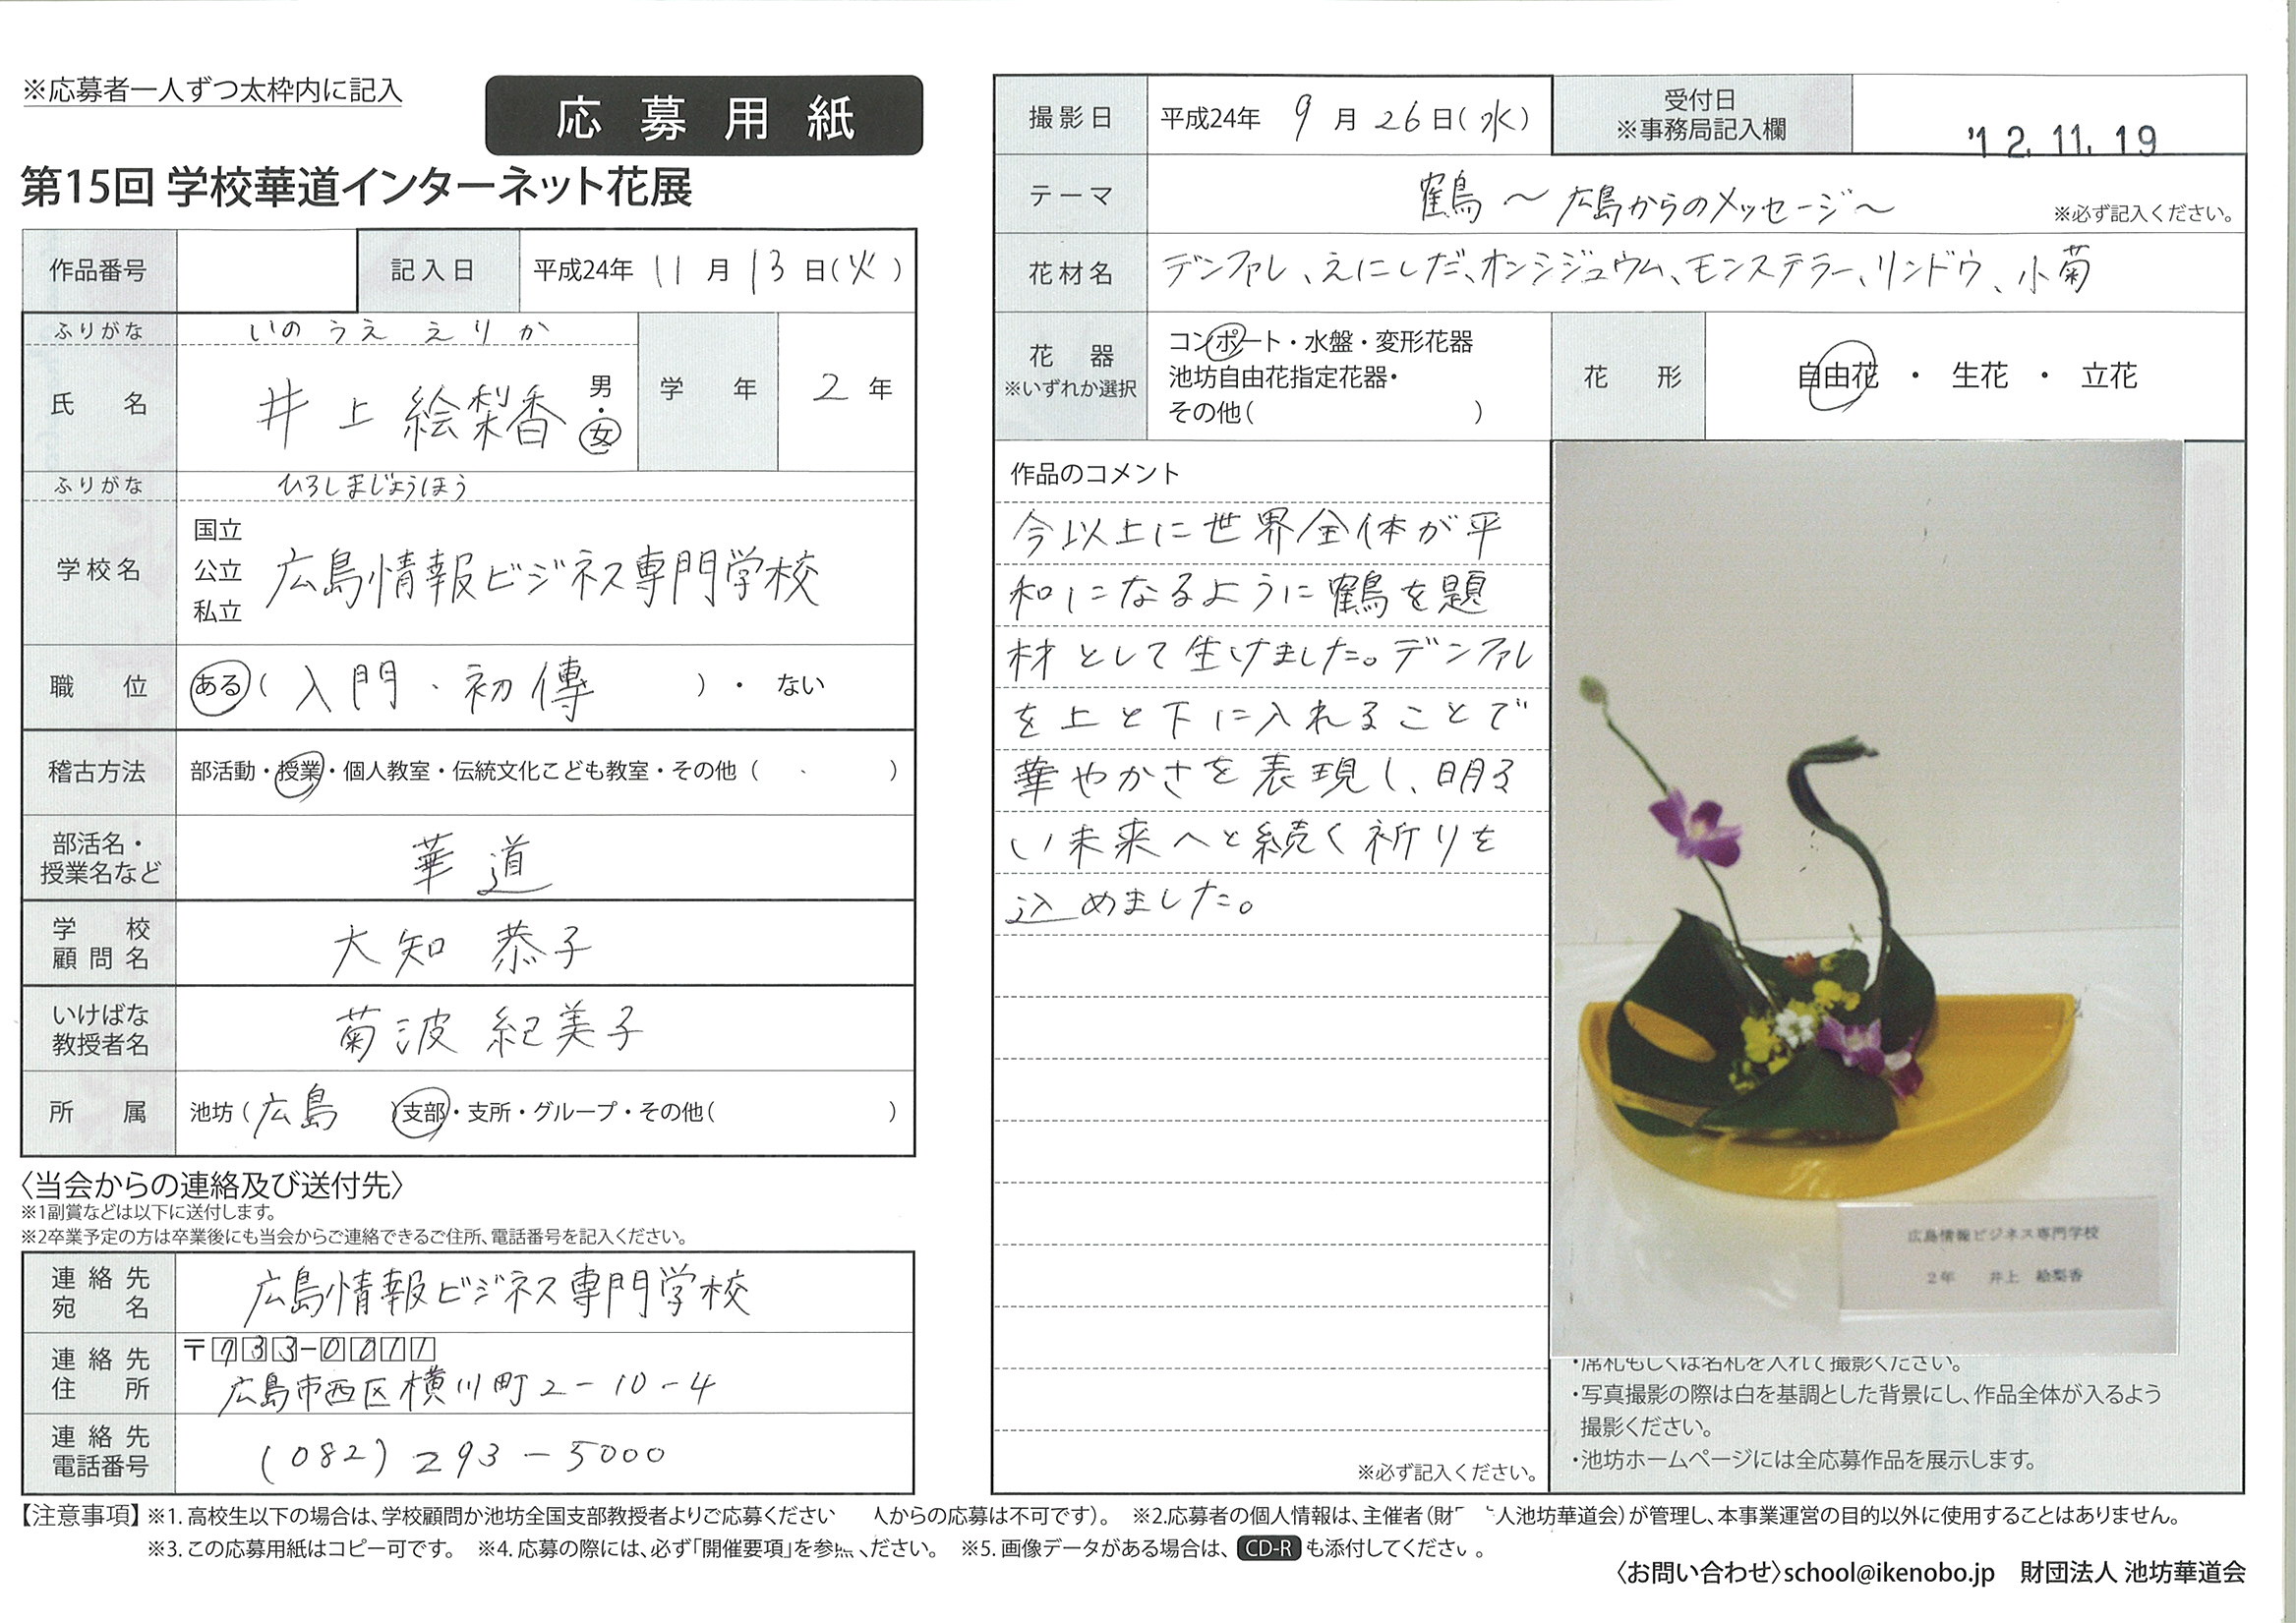 ※応募者一人ずつ太枠内に記入
応募用紙
第15回 学校華道インターネット花展
作品番号
記入日 平成24年 11月 13日(火)
ふりがな いのうええりか
氏名 井上絵梨香 男・女
学年 2年
ふりがな ひろしまじょうほう
学校名 国立 公立 私立 広島情報ビジネス専門学校
職位 ある( 入門・初傳 )・ない
稽古方法 部活動・授業・個人教室・伝統文化こども教室・その他( )
部活名・授業名など 華道
学校顧問名 大知 恭子
いけばな教授者名 菊波 紀美子
所属 池坊(広島)支部・支所・グループ・その他( )
〈当会からの連絡及び送付先〉
※1副賞などは以下に送付します。
※2卒業予定の方は卒業後にも当会からご連絡できるご住所、電話番号を記入ください。
連絡先宛名 広島情報ビジネス専門学校
連絡先住所 〒733-0011
広島市西区横川町2-10-4
連絡先電話番号 (082)293-5000
撮影日 平成24年 9月 26日(水)
受付日
※事務局記入欄
'12.11.19
テーマ 鶴～広島からのメッセージ～ ※必ず記入ください。
花材名 デンファレ、えにしだ、オンシジュウム、モンステラー、リンドウ、小菊
花器 ※いずれか選択
コンポート・水盤・変形花器
池坊自由花指定花器・
その他( )
花形 自由花・生花・立花
作品のコメント
今以上に世界全体が平
和になるように鶴を題
材として生けました。デンファレ
を上と下に入れることで
華やかさを表現し、明る
い未来へと続く祈りを
込めました。
※必ず記入ください。
広島情報ビジネス専門学校
2年 井上 絵梨香
・席札もしくは名札を入れて撮影ください。
・写真撮影の際は白を基調とした背景にし、作品全体が入るよう
撮影ください。
・池坊ホームページには全応募作品を展示します。
【注意事項】※1. 高校生以下の場合は、学校顧問か池坊全国支部教授者よりご応募ください 人からの応募は不可です)。 ※2.応募者の個人情報は、主催者(財 人池坊華道会)が管理し、本事業運営の目的以外に使用することはありません。
※3. この応募用紙はコピー可です。 ※4. 応募の際には、必ず「開催要項」を参照ください。 ※5. 画像データがある場合は、CD-Rも添付してください。
〈お問い合わせ〉school@ikenobo.jp 財団法人 池坊華道会